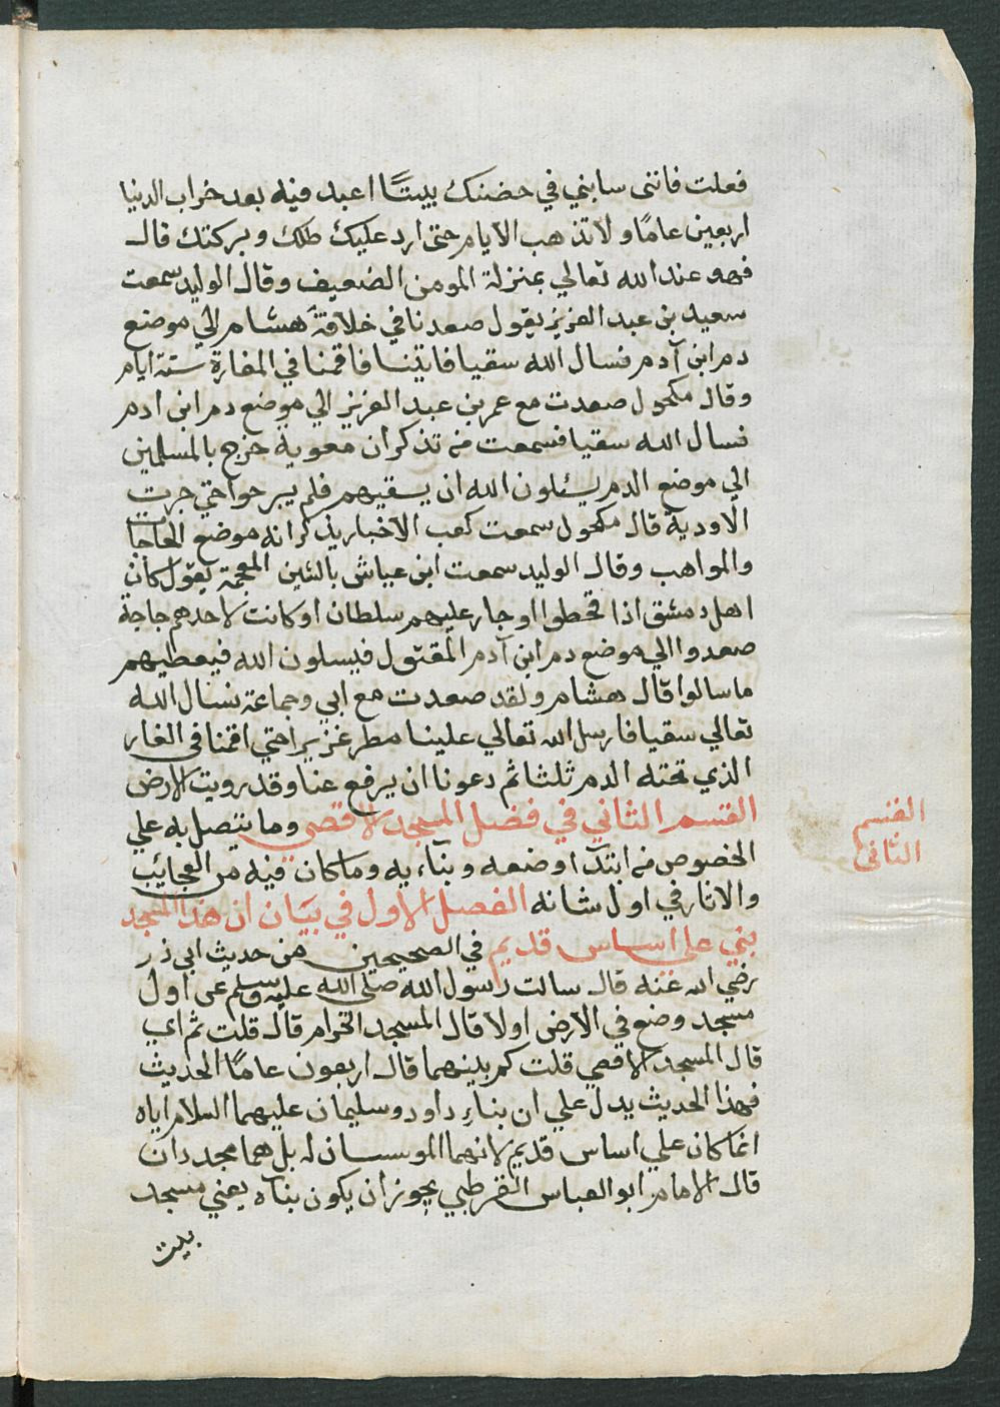 فعلت فانني سابني في حضنك بيتًا اعبد فيه بعد خراب الدنيا
اربعين عامًا ولا تذهب الايام حتى ارد عليك ظلك وبركتك قال
فهو عند الله تعالي بمنزلة المومن الضعيف وقال الوليد سمعت
سعيد بن عبد العزيز يقول صعدنا في خلافة هشام الي موضع
دم ابن آدم نسال الله سقيا فاتينا فاقمنا في المغارة ستة ايام
وقال مكحول صعدت مع عمر بن عبد العزيز الي موضع دم ابن ادم
نسال الله سقيا فسمعت من تذكر ان معوية خرج بالمسلمين
الي موضع الدم يسئلون الله ان يسقيهم فلم يبرحوا حتي جرت
الاودية قال مكحول سمعت كعب الاخبار يذكر انه موضع الحاجات
والمواهب وقال الوليد سمعت ابن عياش بالشين المعجمة يقول كان
اهل دمشق اذا قحطوا او جار عليهم سلطان او كانت لاحدهم حاجة
صعدوا الي موضع دم ابن آدم المقتول فيسلون الله فيعطيهم
ما سالوا قال هشام ولقد صعدت مع ابي وجماعة نسال الله
تعالي سقيا فارسل الله تعالي علينا مطر غزيرا حتي اقمنا في الغار
الذي تحته الدم ثلثا ثم دعونا ان يرفع عنا وقد رويت الارض
القسم الثاني في فضل المسجد الاقصى وما يتصل به علي
القسم
الثاني
الخصوص من ابتدآ وضعه وبنآءيه وما كان فيه من العجائب
والاثار في اول شانه الفصل الاول في بيان ان هذا المسجد
بني على اساس قديم في الصحيحين من حديث ابي ذر
رضي الله عنه قال سالت رسول الله صلى الله عليه وسلم عن اول
مسجد وضع في الارض اولا قال المسجد الحرام قال قلت ثم اي
قال المسجد الاقصي قلت كم بينهما قال اربعون عامًا الحديث
فهذا الحديث يدل علي ان بناء داود وسليمان عليهما السلام اياه
انما كان علي اساس قديم لانهما الموسسان له بل هما مجددان
قال الامام ابو العباس القرطبي يجوز ان يكون بناه يعني مسجد
بيت